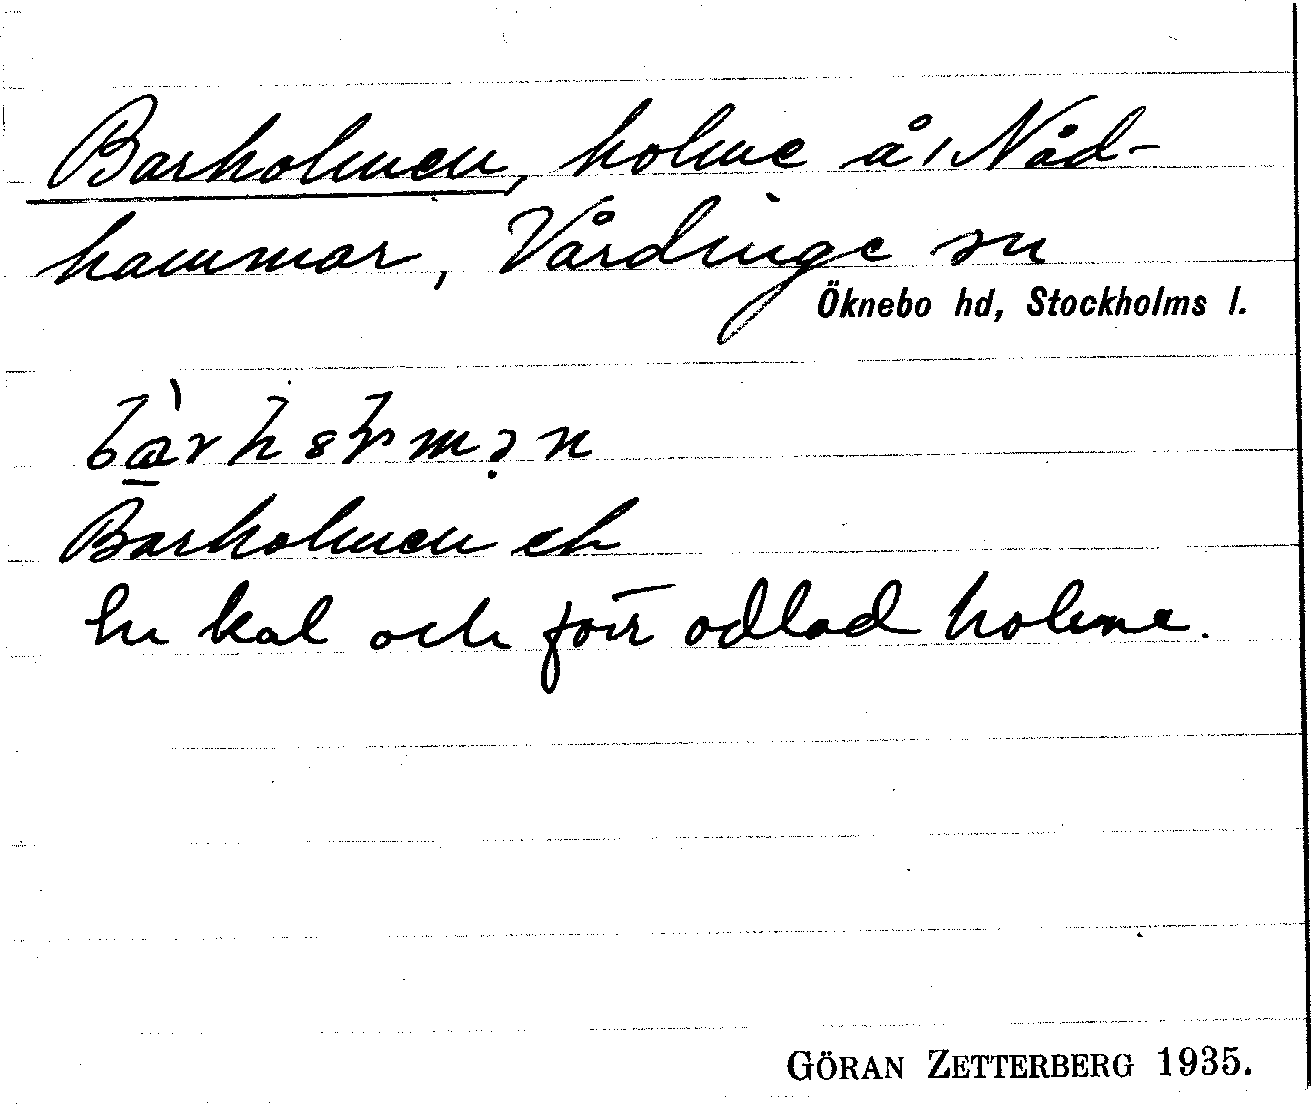 Barholmen, holme å 1 Nåd-
hammar, Vårdinge sn
Öknebo hd, Stockholms l.
Barholmen ek
En kal och förr odlad holme.
GÖRAN ZETTERBERG 1935.